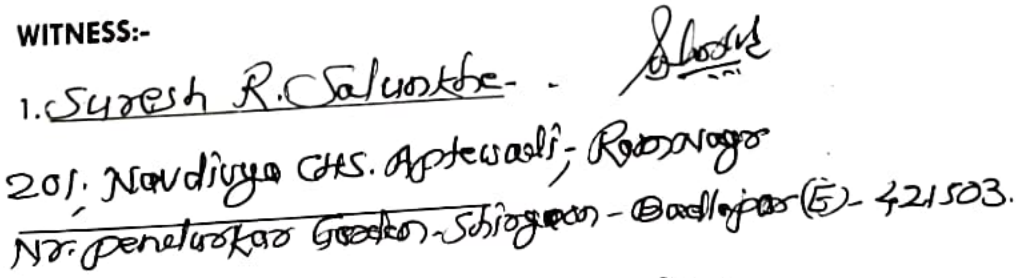 WITNESS:-
1. Suresh R. Salunkhe.
201, Navdivya CHS. Aptewadi, Ramnagr
Nr. Penelurkar Garden - Shirgaon - Badlapur (E) - 421503.